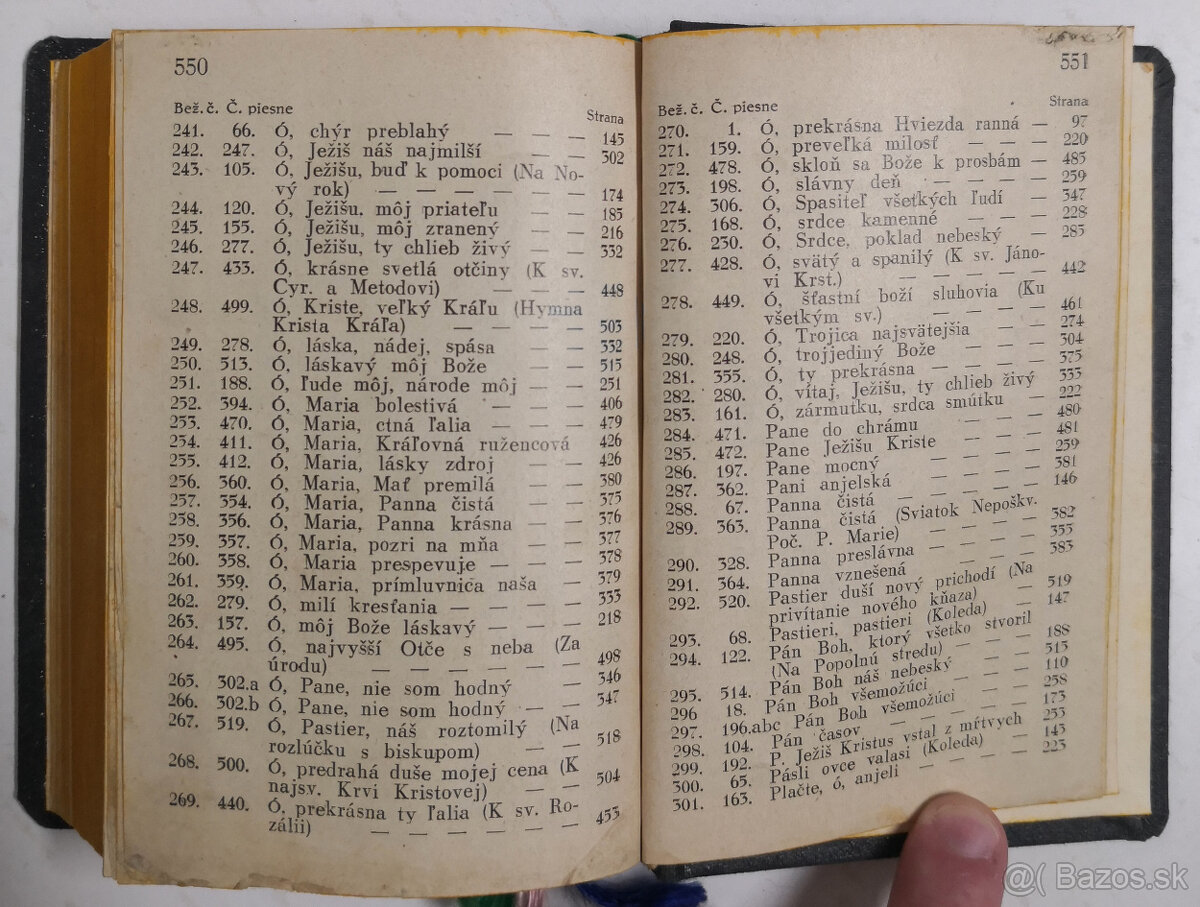 550
Bež. č. Č. piesne Strana
241. 66. Ó, chýr preblahý — — — 145
242. 247. Ó, Ježiš náš najmilší — — 302
243. 105. Ó, Ježišu, buď k pomoci (Na No-
vý rok) — — — — — — 174
244. 120. Ó, Ježišu, môj priateľu — — 185
245. 155. Ó, Ježišu, môj zranený — — 216
246. 277. Ó, Ježišu, ty chlieb živý — — 332
247. 433. Ó, krásne svetlá otčiny (K sv.
Cyr. a Metodovi) — — — — 448
248. 499. Ó, Kriste, veľký Kráľu (Hymna
Krista Kráľa) — — — — 503
249. 278. Ó, láska, nádej, spása — — 332
250. 513. Ó, láskavý môj Bože — — 515
251. 188. Ó, ľude môj, národe môj — — 251
252. 394. Ó, Maria bolestivá — — — 406
253. 470. Ó, Maria, ctná ľalia — — — 479
254. 411. Ó, Maria, Kráľovná ružencová 426
255. 412. Ó, Maria, lásky zdroj — — 426
256. 360. Ó, Maria, Mať premilá — — 380
257. 354. Ó, Maria, Panna čistá — — 375
258. 356. Ó, Maria, Panna krásna — — 376
259. 357. Ó, Maria, pozri na mňa — — 377
260. 358. Ó, Maria prespevuje — — — 378
261. 359. Ó, Maria, prímluvnica naša — — 379
262. 279. Ó, milí kresťania — — — — 333
263. 157. Ó, môj Bože láskavý — — — — 218
264. 495. Ó, najvyšší Otče s neba (Za
úrodu) — — — — — — 498
265. 302.a Ó, Pane, nie som hodný — 346
266. 302.b Ó, Pane, nie som hodný — — 347
267. 519. Ó, Pastier, náš roztomilý (Na
rozlúčku s biskupom) — — 518
268. 500. Ó, predrahá duše mojej cena (K
najsv. Krvi Kristovej) — — 504
269. 440. Ó, prekrásna ty ľalia (K sv. Ro-
zálii) — — — — — — 453
551
Bež. č. Č. piesne Strana
270. 1. Ó, prekrásna Hviezda ranná — 97
271. 159. Ó, preveľká milosť — — — 220
272. 478. Ó, skloň sa Bože k prosbám — 485
273. 198. Ó, slávny deň — — — — 259
274. 306. Ó, Spasiteľ všetkých ľudí — 347
275. 168. Ó, srdce kamenné — — — 228
276. 230. Ó, Srdce, poklad nebeský — — 285
277. 428. Ó, svätý a spanilý (K sv. Jáno-
vi Krst.) — — — — — 442
278. 449. Ó, šťastní boží sluhovia (Ku
všetkým sv.) — — — — 461
279. 220. Ó, Trojica najsvätejšia — — 274
280. 248. Ó, trojjediný Bože — — — 304
281. 355. Ó, ty prekrásna — — — — 375
282. 280. Ó, vítaj, Ježišu, ty chlieb živý 333
283. 161. Ó, zármutku, srdca smútku — — 222
284. 471. Pane do chrámu — — — 480
285. 472. Pane Ježišu Kriste — — — 481
286. 197. Pane mocný — — — — 259
287. 362. Pani anjelská — — — — 381
288. 67. Panna čistá — — — — 146
289. 363. Panna čistá (Sviatok Nepoškv.
Poč. P. Marie) — — — — 382
290. 328. Panna preslávna — — — — 355
291. 364. Panna vznešená — — — — 383
292. 520. Pastier duší nový prichodí (Na
privítanie nového kňaza) — 519
293. 68. Pastieri, pastieri (Koleda) — — 147
294. 122. Pán Boh, ktorý všetko stvoril
(Na Popolnú stredu) — — — 188
295. 514. Pán Boh náš nebeský — — 515
296 18. Pán Boh všemožúci — — — 110
297. 196.abc Pán Boh všemožúci — — — 258
298. 104. Pán časov — — — — — 173
299. 192. P. Ježiš Kristus vstal z mŕtvych 253
300. 65. Pásli ovce valasi (Koleda) — — 143
301. 163. Plačte, ó, anjeli — — — — 223
@( Bazos.sk